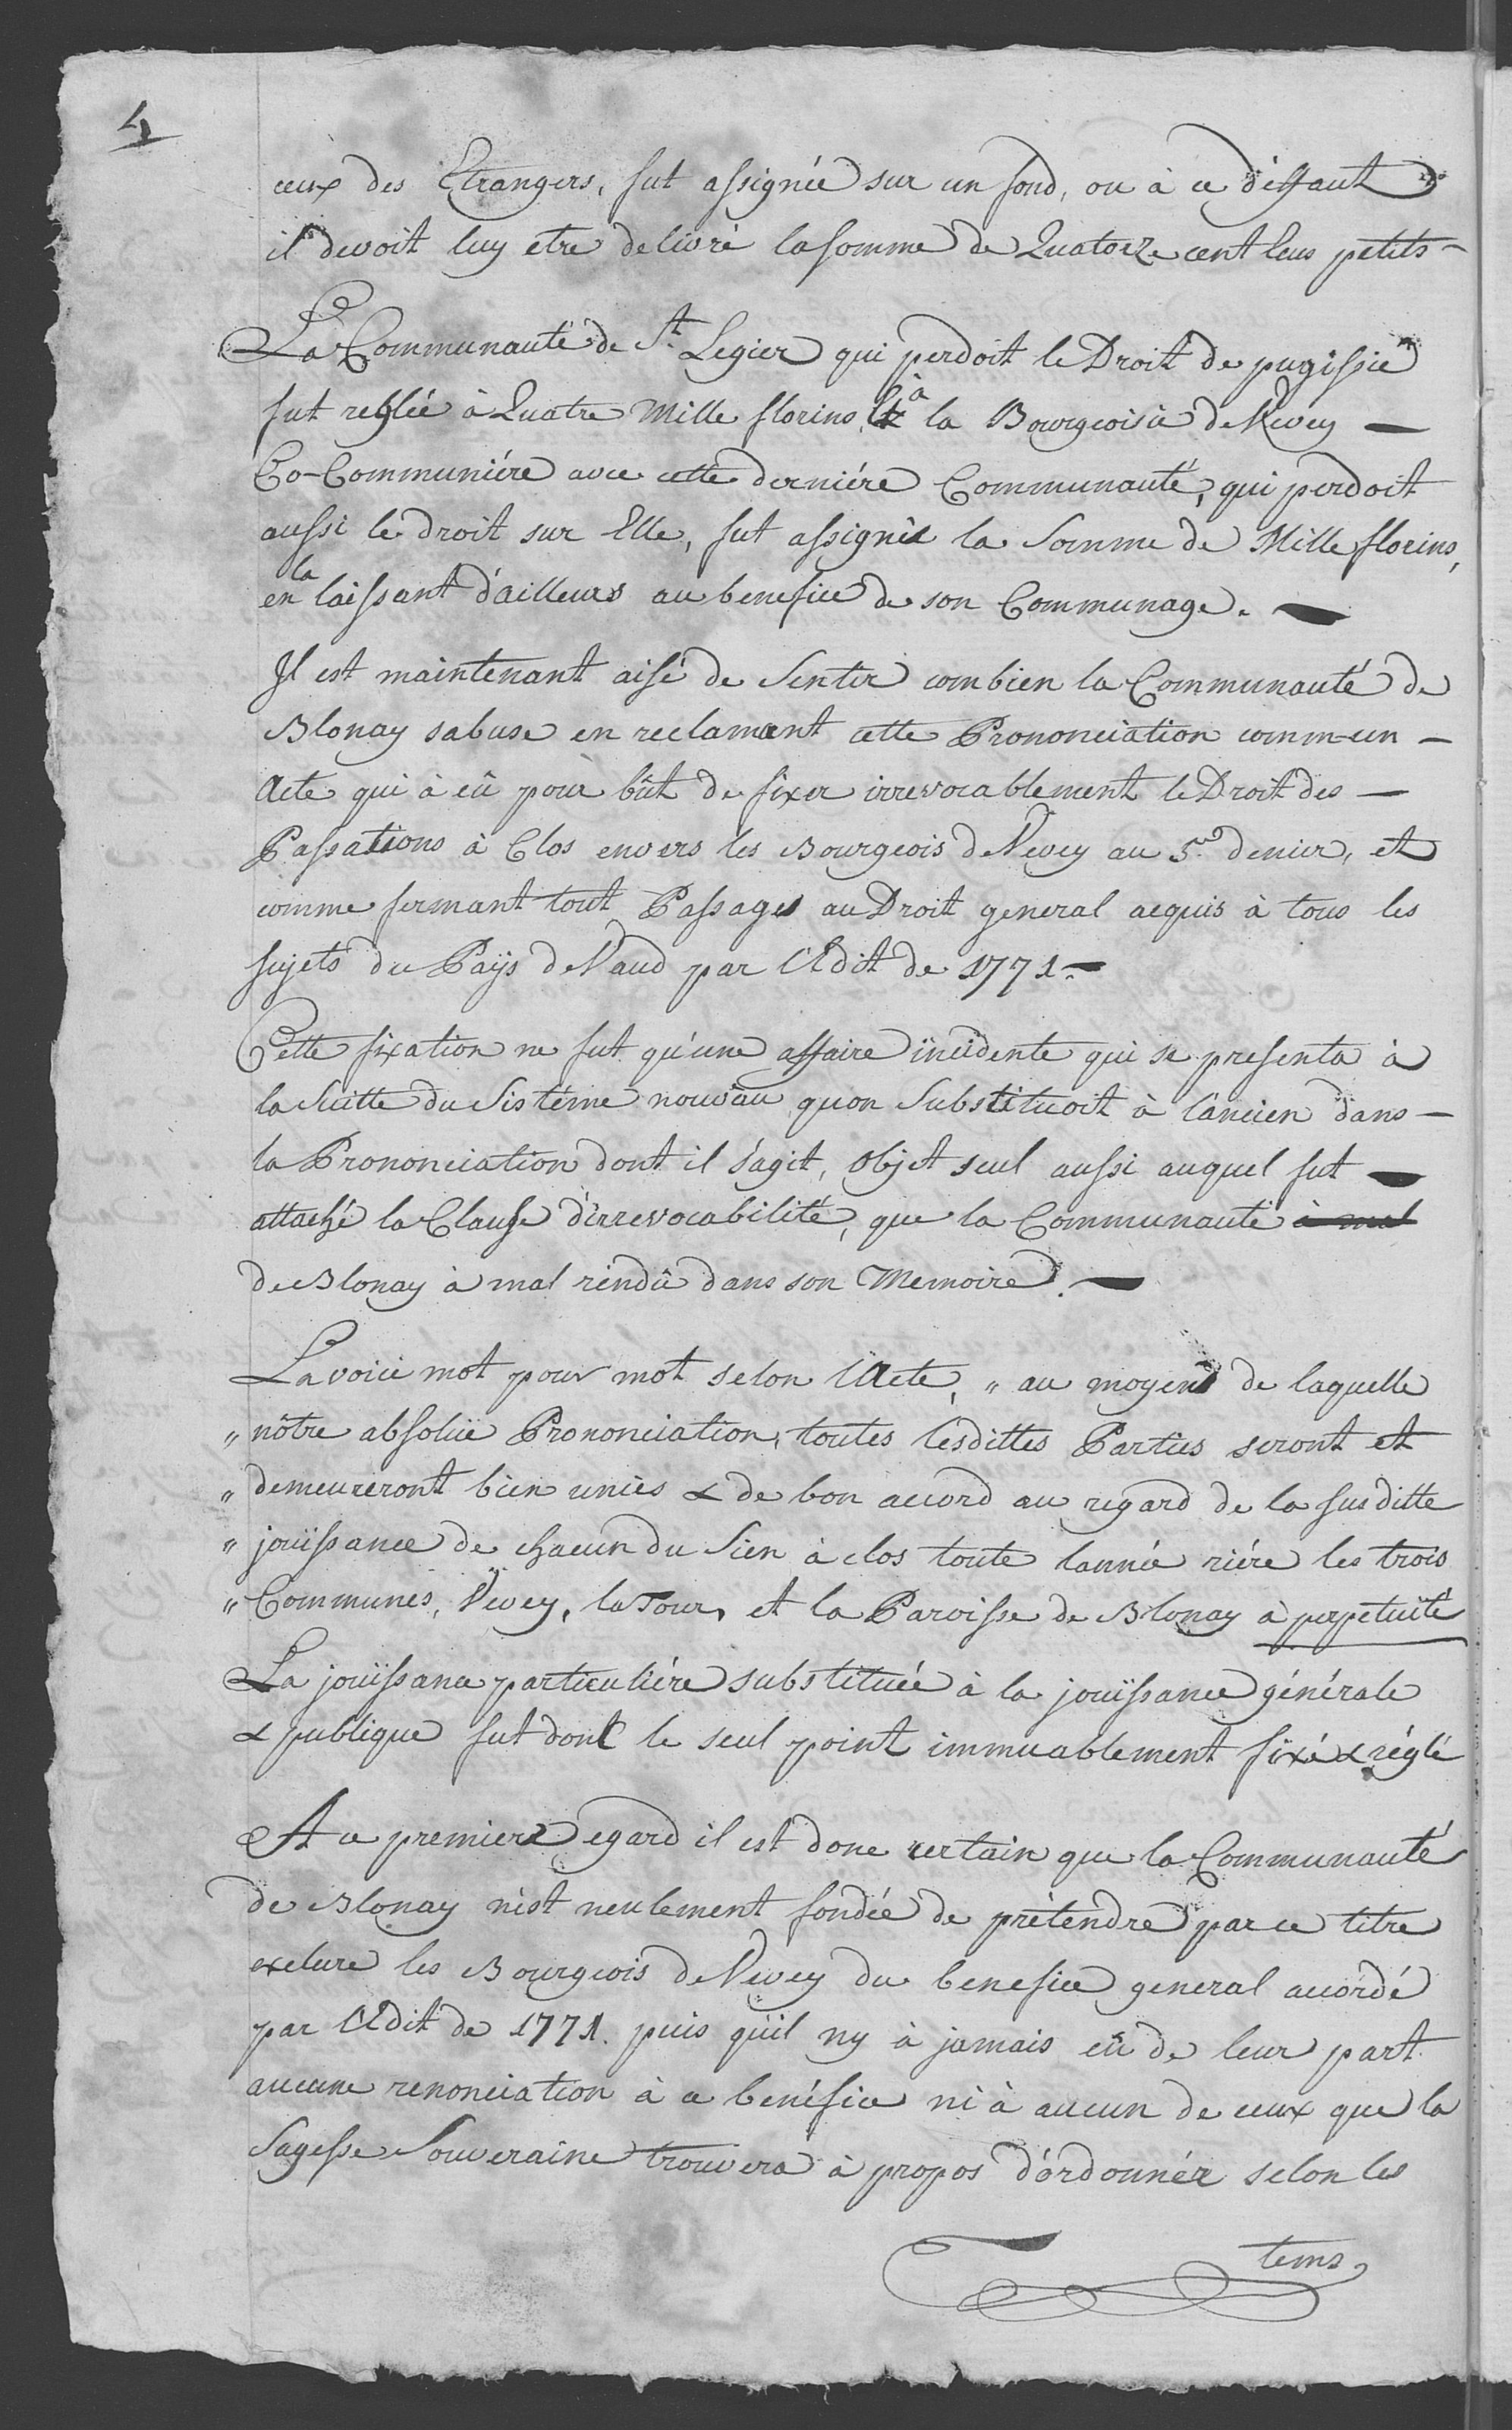 4
ceux des Etrangers, fut assignée sur un fond, ou à ce déffaut
il devoit luy etre delivré la somme de Quatorze cent leus petits -
La Communauté de St. Legier qui perdoit le Droit de pugissie
fut reglée à Quatre Mille florins, & à la Bourgeoisie de Vevey —
Co-Communiére avec cette derniére Communauté, qui perdoit
aussi le droit sur Elle, fut assignée la Somme de Mille florins,
en la laissant d'ailleurs au benefice de son Communage. —
Il est maintenant aisé de Sentir combien la Communauté de
Blonay sabuse en reclamant cette Prononciation comm-un —
Acte qui à eû pour bût de fixer irrevocablement le Droit des —
Passations à Clos envers les Bourgeois de Vevey au 5e. denier, et
comme fermant tout Passages au Droit general acquis à tous les
sujets du Païs de Vaud par l'Edit de 1771. —
Cette fixation ne fut qu'une affaire incidente qui se presenta à
la Suitte du Sistéme nouveau quon Substituoit à l'ancien dans —
la Prononciation dont il s'agit, Objet seul aussi auquel fut —
attaché la Clause d'irrevocabilité, que la Communauté à mal
de Blonay à mal rendû dans son Memoire. —
La voici mot pour mot selon l'Acte, „ au moyen de laquelle
„ nôtre absoluë Prononciation, toutes lesdittes Parties seront et
„ demeureront bien uniës & de bon accord au regard de la susditte
„ jouïssance de chacun du Sien à clos toute lannée riére les trois
„ Communes, Vevey, la Tour, et la Paroisse de Blonay à perpetuité
La jouïssance particuliére substituée à la jouïssance générale
& publique fut donc le seul point immuablement fixé & réglé
A ce premier egard il est donc certain que la Communauté
de Blonay n'est neulement fondée de prétendre par ce titre
exclure les Bourgeois de Vevey du benefice general accordé
par l'Edit de 1771. puis qu'il ny à jamais eû de leur part
aucune renonciation à ce benéfice ni à aucun de ceux que la
Sagesse Souveraine trouvera à propos d'ordonnér selon les
tems